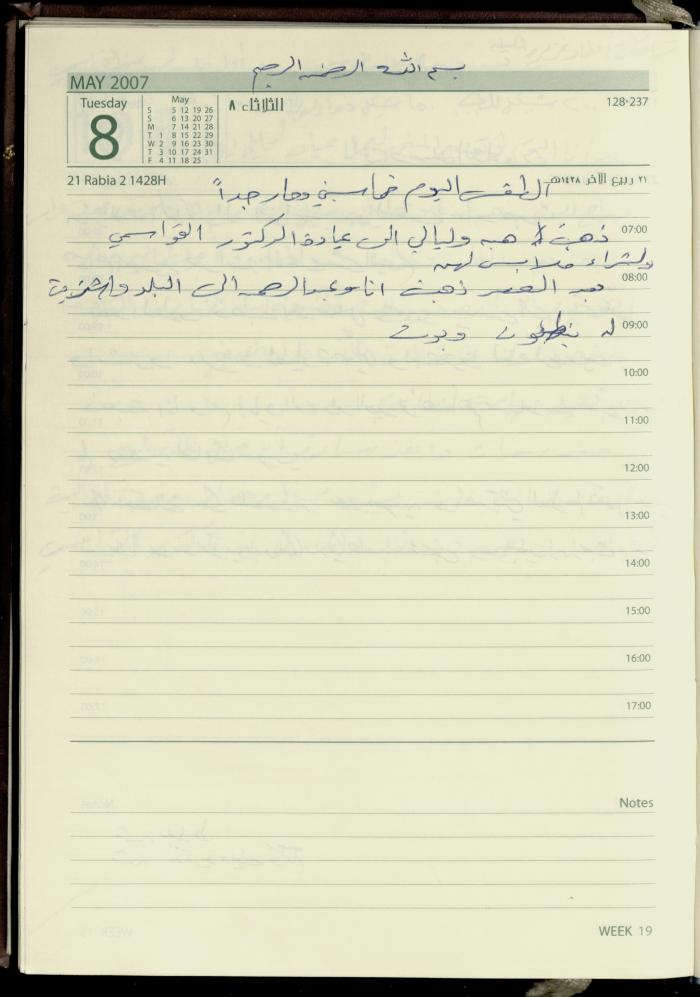 بسم الله الرحمن الرحيم
MAY 2007
Tuesday
8
May
S 5 12 19 26
S 6 13 20 27
M 7 14 21 28
T 1 8 15 22 29
W 2 9 16 23 30
T 3 10 17 24 31
F 4 11 18 25
الثلاثاء ٨
128-237
21 Rabia 2 1428H
٢١ ربيع الآخر ١٤٢٨هـ
الطقس اليوم خماسيني وحار جداً
07:00
ذهبت هبه وليالي الى عيادة الدكتور القواسمي
ولشراء ملابس لهن
08:00
بعد العصر ذهبت انا وعبد الرحمن الى البلد واشتريت
09:00
له بنطلون وبوت
10:00
11:00
12:00
13:00
14:00
15:00
16:00
17:00
Notes
WEEK 19